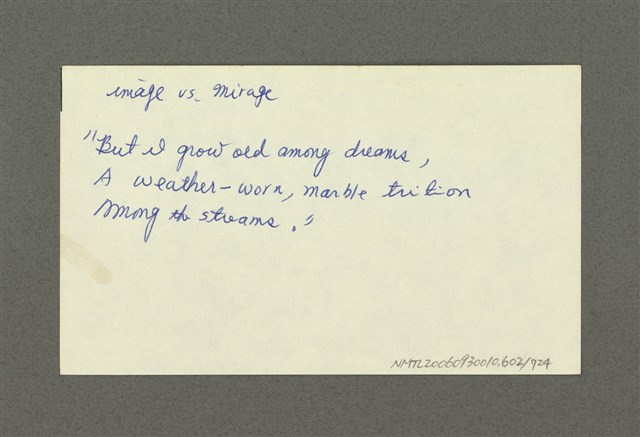 image vs. mirage
"But I grow old among dreams,
A weather-worn, marble trition
Among the streams."
NMTL20060930010.602/924